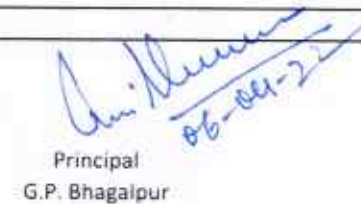 06-04-22
Principal
G.P. Bhagalpur